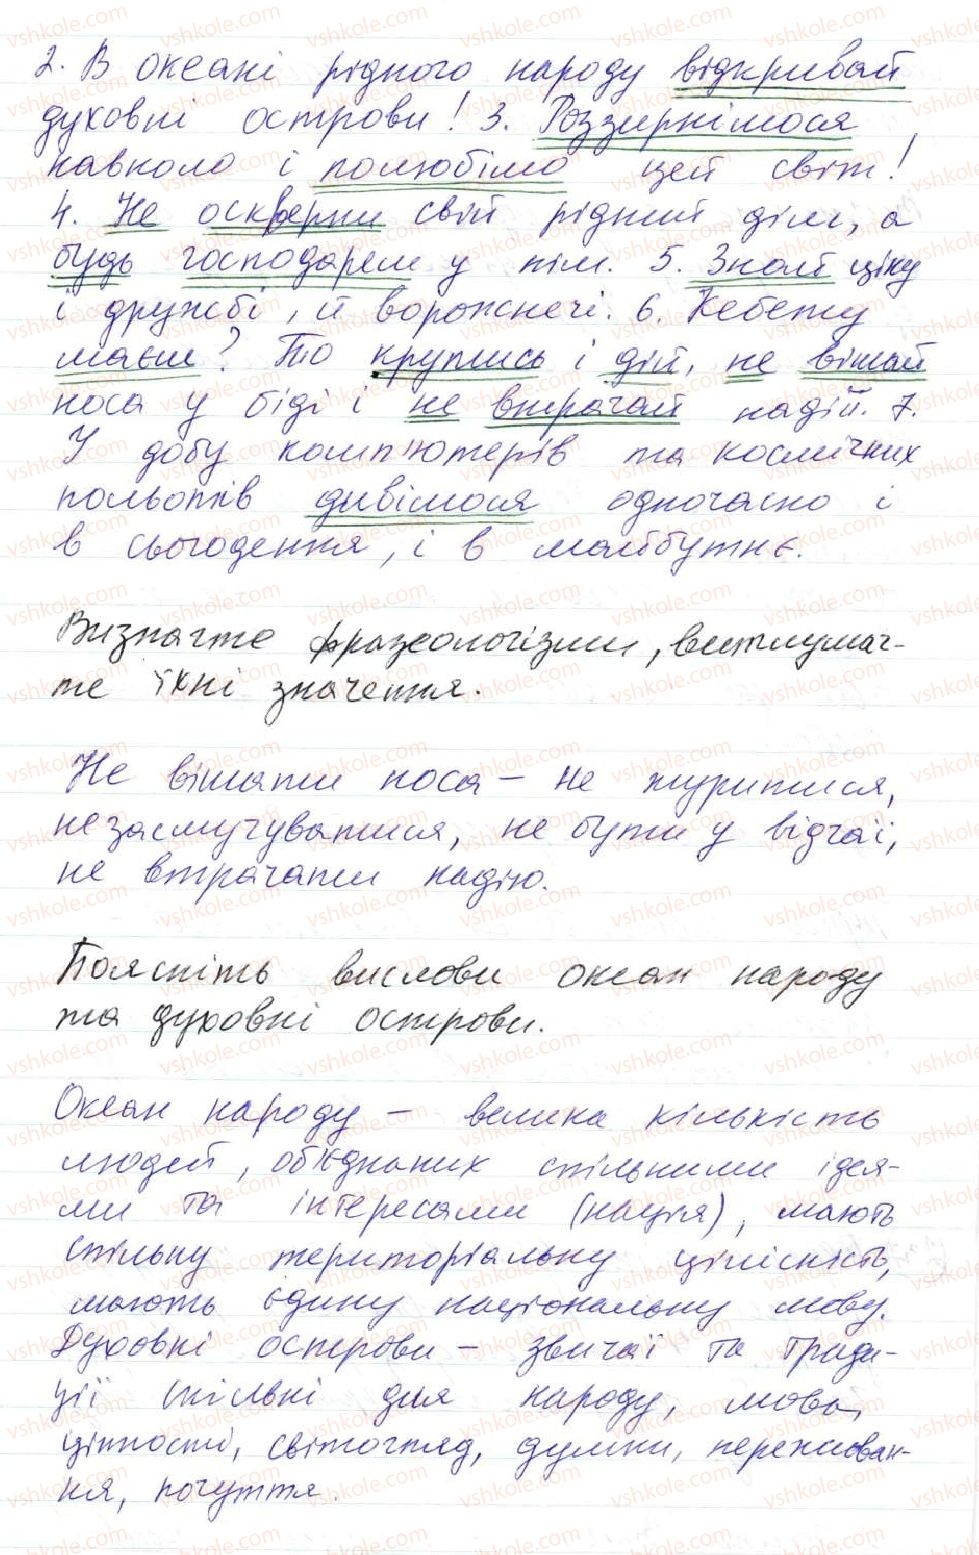 2. В океані рідного народу відкривай
духовні острови! 3. Роззирнімося
навколо і полюбімо цей світ!
4. Не оскверни свій рідний дім, а
будь господарем у нім. 5. Знай ціну
і дружбі, й ворожнечі. 6. Кебету
маєш? То крутись і дій, не вішай
носа у біді і не втрачай надій. 7.
У добу комп'ютерів та космічних
польотів дивімося одночасно і
в сьогодення, і в майбутнє.
Визначте фразеологізми, витлумач-
те їхні значення.
Не вішати носа – не журитися,
не засмучуватися, не бути у відчаї,
не втрачати надію.
Поясніть вислови океан народу
та духовні острови.
Океан народу – велика кількість
людей, об'єднаних спільними ідея-
ми та інтересами (нація), мають
спільну територіальну цілісність,
мають єдину національну мову.
Духовні острови – звичаї та тради-
ції спільні для народу, мова,
цінності, світогляд, думки, переживан-
ня, почуття.
vshkole.com